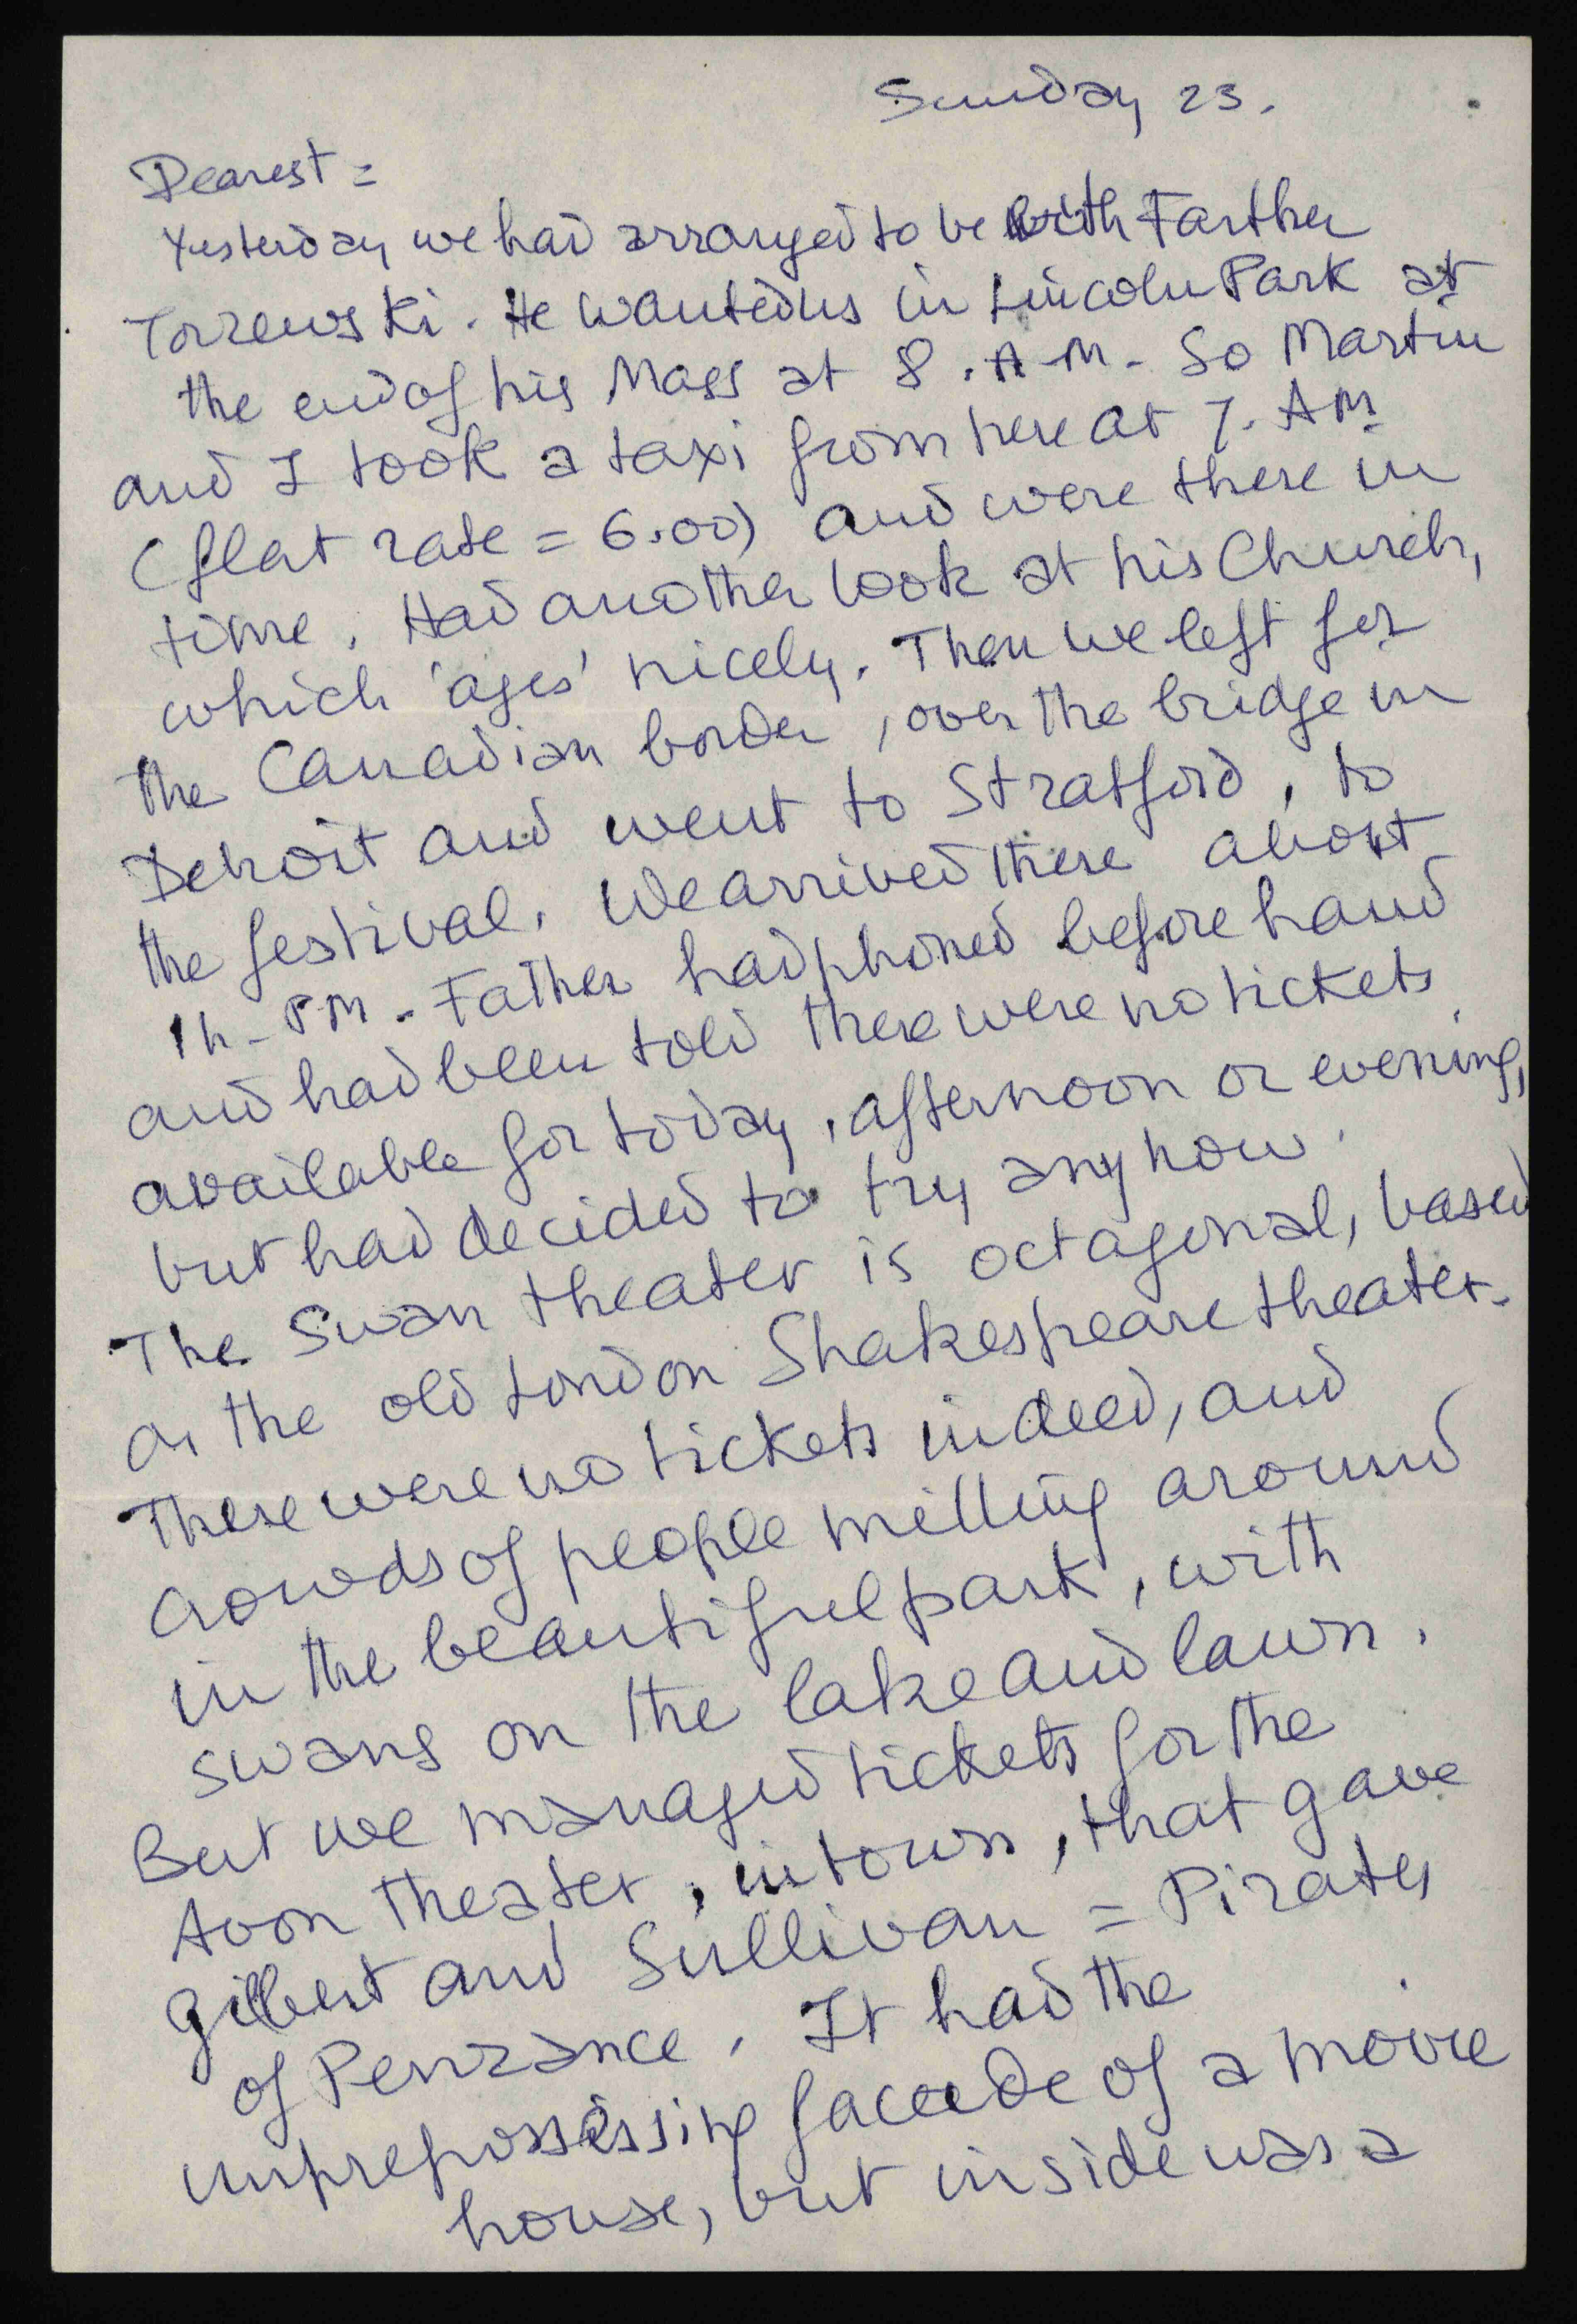 Sunday 23.
Dearest =
Yesterday we had arranged to be with Farther
Torzewski. He wanted us in Lincoln Park at
the end of his Mass at 8. A-M. So Martin
and I took a taxi from here at 7. AM
(flat rate = 6.00) and were there in
time. Had another look at his Church,
which 'ages' nicely. Then we left for
the Canadian border, over the bridge in
Detroit and went to Stratford, to
the festival. We arrived there about
1h- PM. Father had phoned before hand
and had been told there were no tickets
available for today, afternoon or evening,
but had decided to try anyhow.
The Swan theater is octagonal, based
on the old London Shakespeare theater.
There were no tickets indeed, and
crowds of people milling around
in the beautiful park, with
swans on the lake and lawn.
But we managed tickets for the
Avon theater, in town, that gave
Gilbert and Sullivan = Pirates
of Penzance. It had the
unprepossessing facade of a movie
house, but inside was a